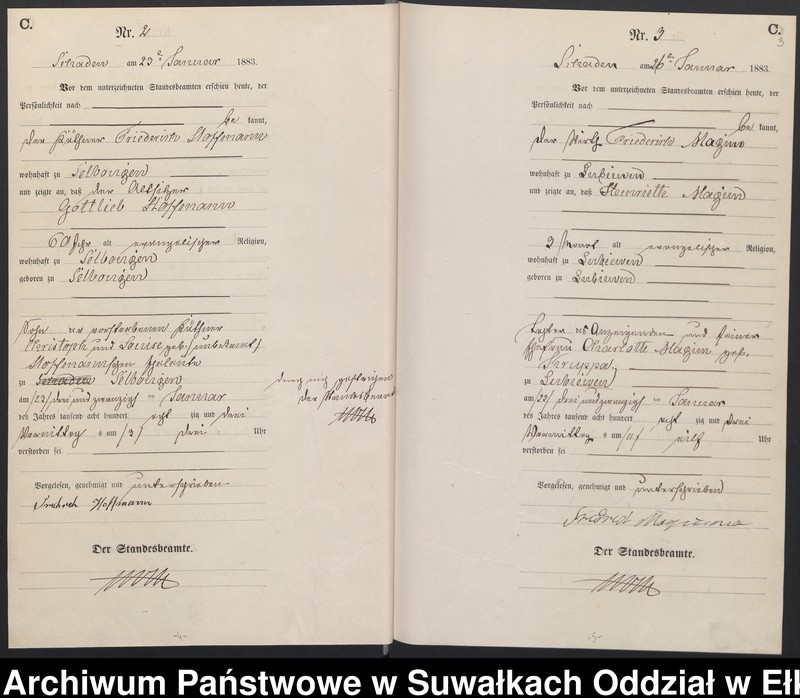 C.
Nr. 2
am 23ª Januar 1883.
Vor dem unterzeichneten Standesbeamten erschien heute, der
Persönlichkeit nach
be kannt,
der Käthner Friedrich Hoffmann
wohnhaft zu Selbongen
und zeigte an, daß der Altsitzer
Gottlieb Hoffmann
60 Jahr alt evangelischer Religion,
wohnhaft zu Selbongen
geboren zu Selbongen
Sohn der verstorbenen Käthner
Christoph und Louise geb. /unbekannt/
Hoffmannschen Eheleute
zu Selbongen
am /23/ drei und zwanzigsten Januar
des Jahres tausend acht hundert acht zig und drei
Vormittag s um /3/ drei Uhr
verstorben sei
durch mich gestrichen
der Standesbeamte
Vorgelesen, genehmigt und unterschrieben
Hoffmann
Der Standesbeamte.
-4-
C.
3
Nr. 3
am 26ª Januar 1883.
Vor dem unterzeichneten Standesbeamten erschien heute, der
Persönlichkeit nach
be kannt,
der Wirth Friedrich
wohnhaft zu
und zeigte an, daß Henriette
3 Monat alt evangelischer Religion,
wohnhaft zu
geboren zu
Tochter des Anzeigenden und seiner
Ehefrau Charlotte geb.
Kruppa
zu
am /23/ drei und zwanzigsten Januar
des Jahres tausend acht hundert acht zig und drei
Vormittag s um /11/ eilf Uhr
verstorben sei
Vorgelesen, genehmigt und unterschrieben
Der Standesbeamte.
-5-
Archiwum Państwowe w Suwałkach Oddział w Eł